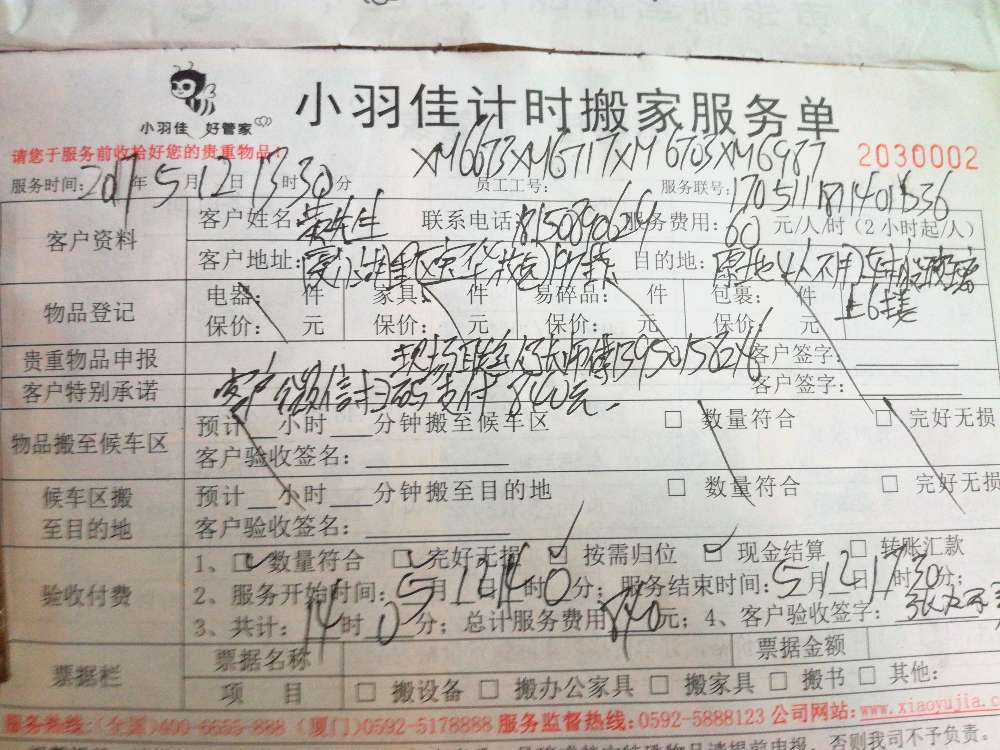 小羽佳 好管家
小羽佳计时搬家服务单
请您于服务前收拾好您的贵重物品!
XM6673XM6717XM6703XM6987
2030002
服务时间:2017年5月12日13时30分 员工工号: 服务联号:
客户资料
客户姓名: 联系电话: 服务费用:60元/人/时(2小时起/人)
客户地址: 目的地:原地4人
上6楼
物品登记
电器: 件 家具: 件 易碎品: 件 包裹: 件
保价: 元 保价: 元 保价: 元 保价: 元
贵重物品申报 现场联系 客户签字:
客户特别承诺 客户微信扫码支付840元. 客户签字:
物品搬至候车区
预计__小时__分钟搬至候车区 □ 数量符合 □ 完好无损
客户验收签名:
候车区搬至目的地
预计__小时__分钟搬至目的地 □ 数量符合 □ 完好无损
客户验收签名:
验收付费
1、☑数量符合 ☑完好无损 ☑按需归位 ☑现金结算 □ 转账汇款
2、服务开始时间:5月12日14时0分;服务结束时间:5月12日17时30分;
3、共计:14时0分;总计服务费用840元;4、客户验收签字:
票据栏
票据名称 票据金额
项 目 □ 搬设备 □ 搬办公家具 □ 搬家具 □ 搬书 □ 其他:
服务热线:(全国)400-6655-888 (厦门)0592-5178888 服务监督热线:0592-5888123 公司网站:www.xiaoyujia.com
请提前申报,否则我司不予负责。